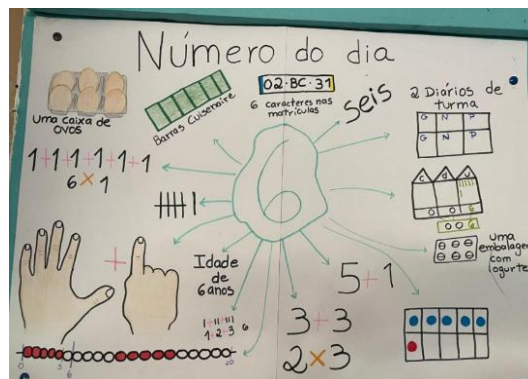 Número do dia
Uma caixa de
ovos
Barras Cuisenaire
02·BC·31
6 caracteres nas
matrículas
seis
2 Diários de
turma
G N P
G N P
1+1+1+1+1+1
6×1
6
C d u
0 0 6
uma
embalagem
com
iogurtes
+
Idade
de
6 anos
1+2+3 6
5+1
3+3
2×3
0 5 6 20